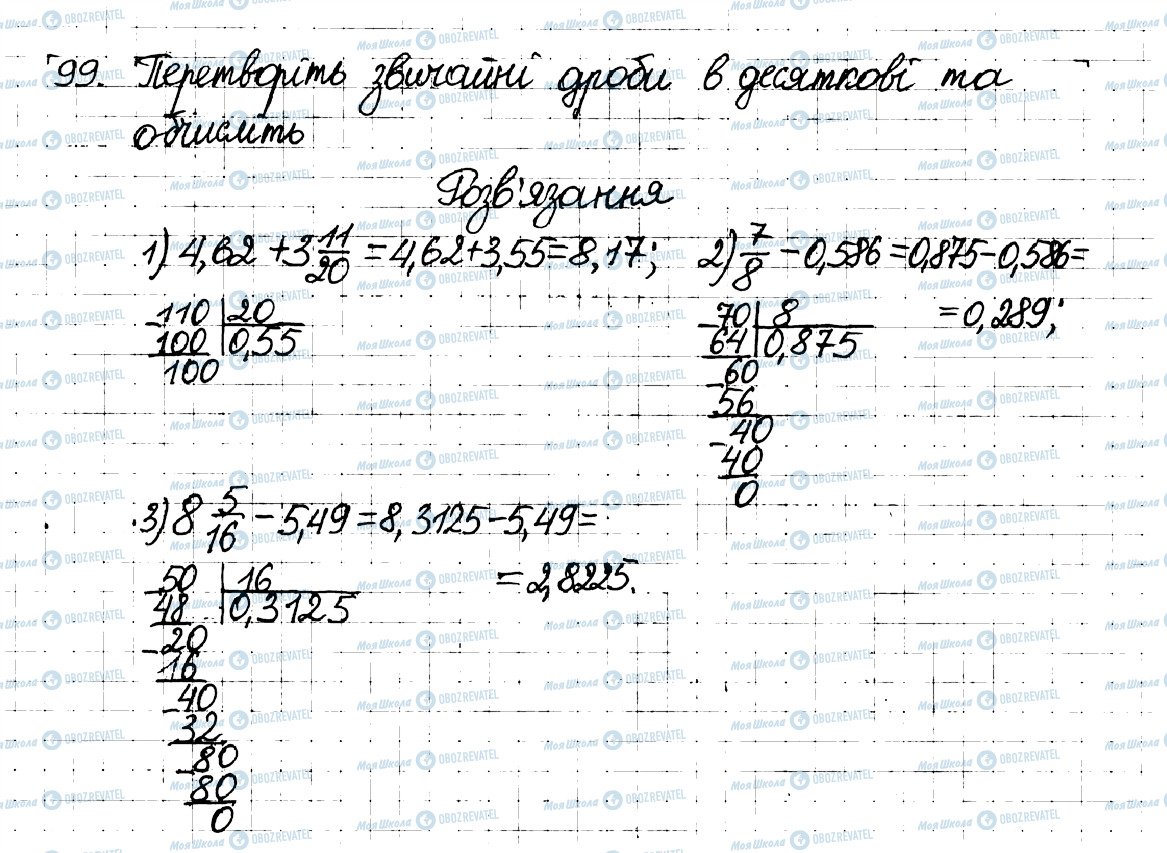 99. Перетворіть звичайні дроби в десяткові та
обчисліть
Розв'язання
1) 4,62 + 3 11/20 = 4,62 + 3,55 = 8,17;
110 | 20
100 | 0,55
100
2) 7/8 - 0,586 = 0,875 - 0,586 =
= 0,289;
70 | 8
64 | 0,875
60
56
40
40
0
3) 8 5/16 - 5,49 = 8,3125 - 5,49 =
= 2,8225.
50 | 16
48 | 0,3125
20
16
40
32
80
80
0
Моя Школа OBOZREVATEL